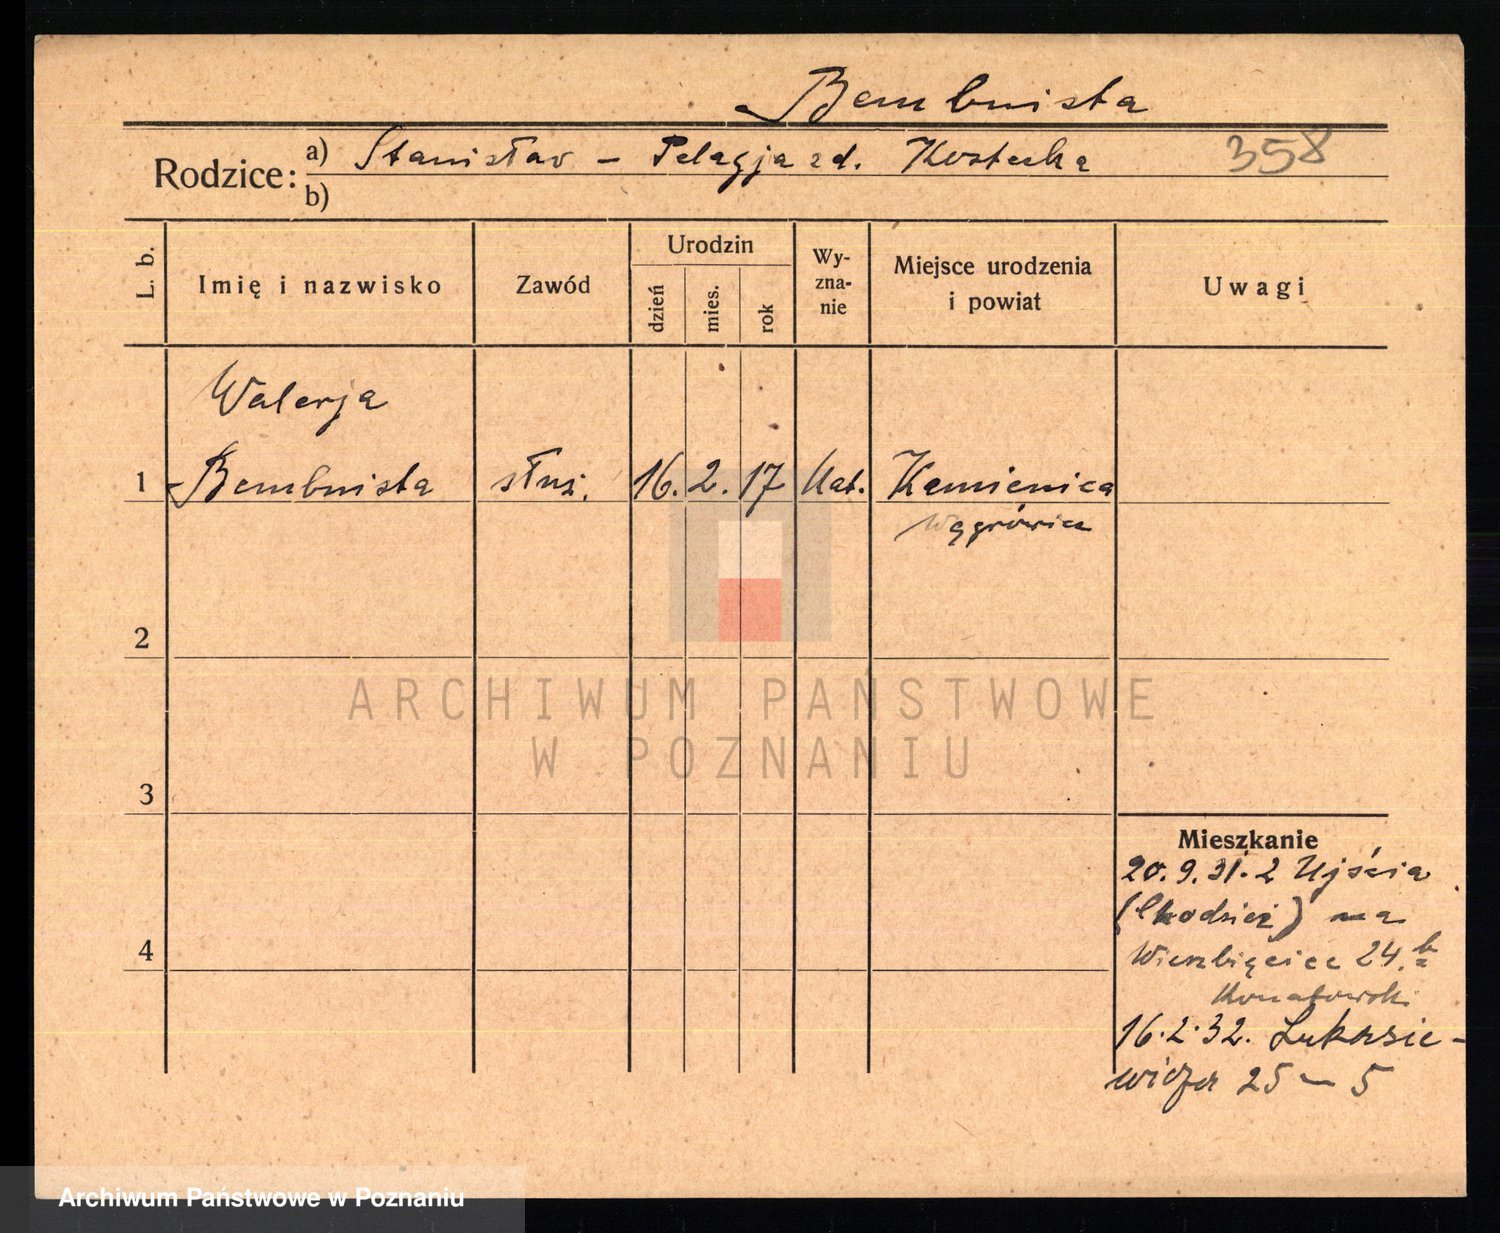 Bembnista
Rodzice: a) Stanisław - Pelagja zd. Kostecka 358
b)
L. b.
Imię i nazwisko
Zawód
Urodzin
dzień
mies.
rok
Wy-
zna-
nie
Miejsce urodzenia
i powiat
Uwagi
Walerja
1 Bembnista służ. 16. 2. 17 Kat. Kamienica
Wągrówiec
2
ARCHIWUM PAŃSTWOWE
W POZNANIU
3
Mieszkanie
20.9.31. z Ujścia
(Chodzież) na
4
Wierzbięcice 24.
16.2.32. Łukasie-
wicza 25 - 5
Archiwum Państwowe w Poznaniu